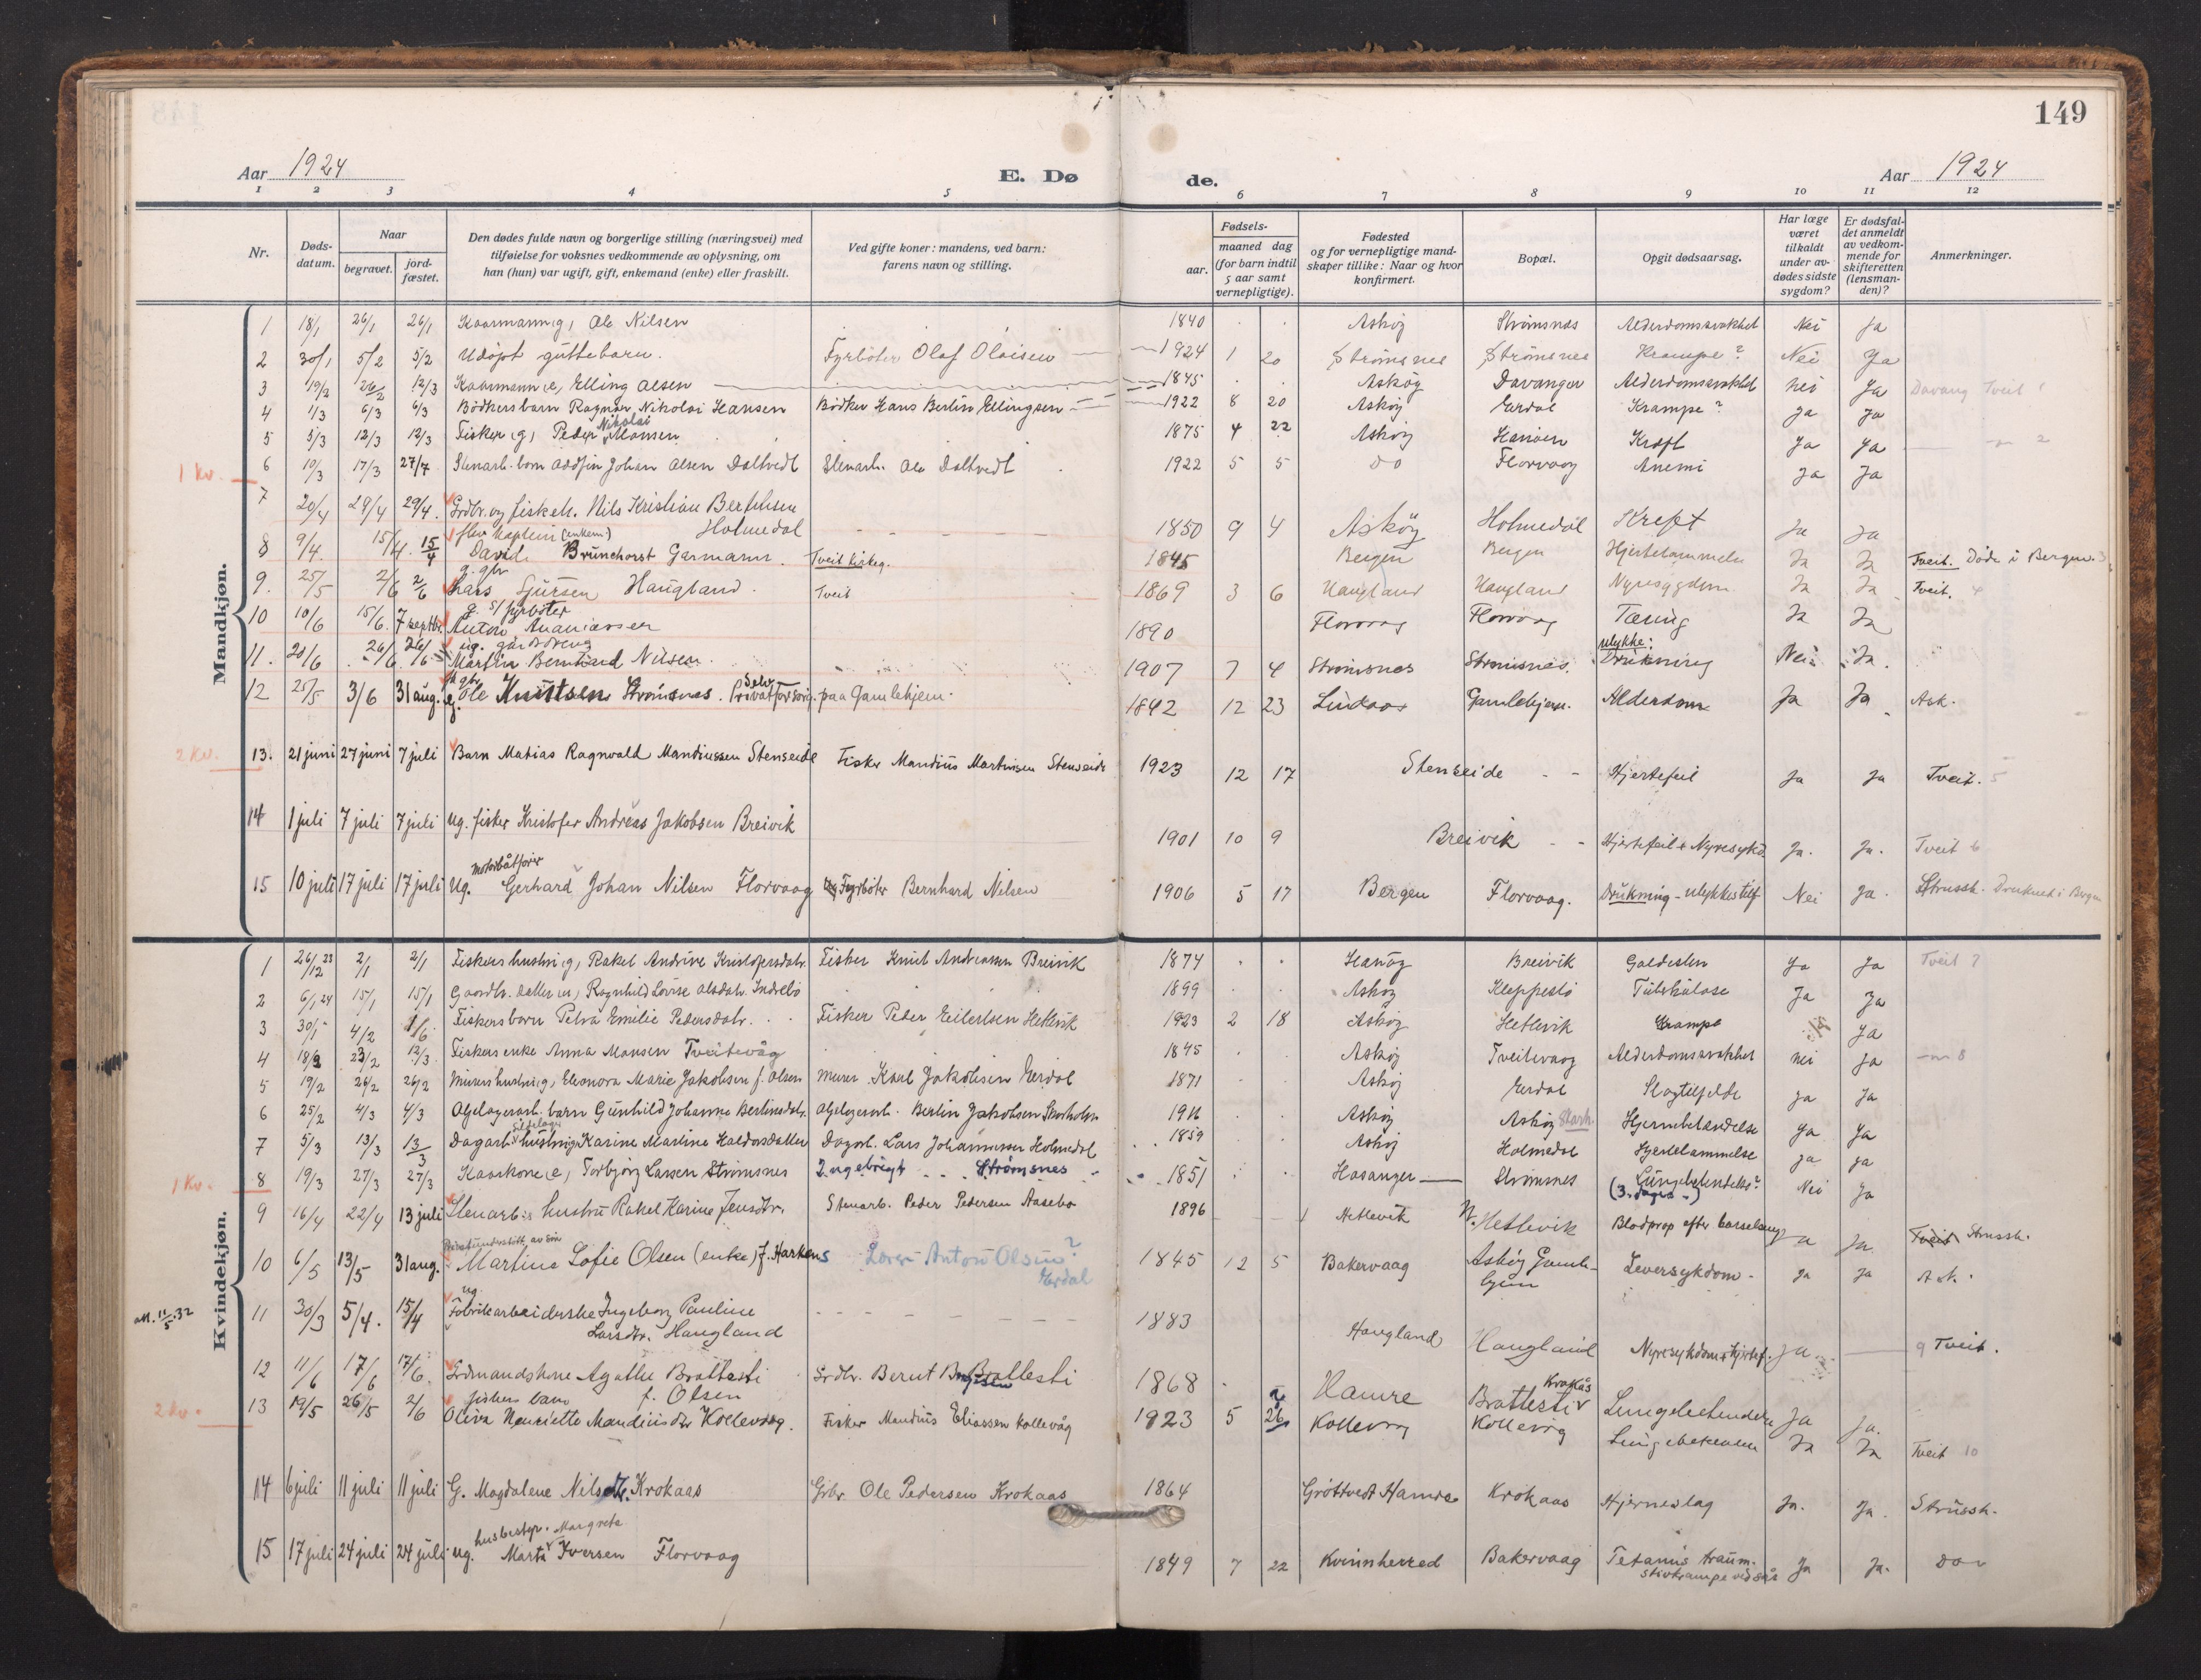 149
Aar 1924
E. Dø de.
Aar 1924
1 2 3 4 5 6 7 8 9 10 11 12
Nr.
Døds-datum.
Naar
begravet.
jord-fæstet.
Den dødes fulde navn og borgerlige stilling (næringsvei) med
tilføielse for voksnes vedkommende av oplysning, om
han (hun) var ugift, gift, enkemand (enke) eller fraskilt.
Ved gifte koner: mandens, ved barn:
farens navn og stilling.
Fødsels-
aar.
maaned dag
(for barn indtil
5 aar samt
vernepligtige).
Fødested
og for vernepligtige mand-
skaper tillike: Naar og hvor
konfirmert.
Bopæl.
Opgit dødsaarsag.
Har læge
været
tilkaldt
under av-
dødes sidste
sygdom?
Er dødsfal-
det anmeldt
av vedkom-
mende for
skifteretten
(lensman-
den)?
Anmerkninger.
Mandkjøn.
1 18/1 26/1 26/1 Kaarmann g, Ole Nilsen 1840 Askøy Strömsnes Alderdomssvakhet Nei Ja
2 30/1 5/2 5/2 Udöpt guttebarn. Fyrböter Olaf Oloisen 1924 1 20 Strömsnes Strömsnes Krampe? Nei Ja
3 19/2 26/2 12/3 Kaarmann e, Elling Olsen 1845 Askøy Davanger Alderdomssvakhet Nei Ja Davang Tveit 1
4 1/3 6/3 6/3 Bödkersbarn Ragnar Nikolai Hansen Bödker Hans Berlin Ellingsen 1922 8 20 Askøy Erdal Krampe? Ja Ja
5 5/3 12/3 12/3 Fisker (g) Peder Nikolai Monsen 1875 4 22 Askøy Hanöen Kræft Ja Ja 2
1 kv.
6 10/3 17/3 27/7 Stenarb. barn Oddfin Johan Olsen Daltvedt Stenarb. Ole Daltvedt 1922 5 5 Do Florvaag Anemi Ja Ja
7 20/4 29/4 29/4. Grdbr. og fiskeh. Nils Kristian Berthelsen
Holmedal 1850 9 4 Askøy Holmedal Kreft Ja Ja
8 9/4. 15/4. 15/4 (enkem) David Brunchorst Garmann. Tveit kirkeg. 1845 Bergen Bergen Hjertelammelse Ja Ja Tveit. Döde i Bergen. 3
9. 25/5 2/6 2/6 g. gbr Lars Sjursen Haugland. Tveit 1869 3 6 Haugland Haugland Nyresygdom Ja Ja Tveit. 4
10 10/6 15/6. 7 septbr. g. s/ fyrböter Anton Ananiassen 1890 Florvaag Florvaag Tæring Ja Ja
11. 20/6 26/6. 26/6 ug. gårdsdreng Martin Berntard Nilsen. 1907 7 4 Strömsnes Strömsnes. ulykke: Drukning Nei Ja.
12 25/5 3/6 31 aug. Ole Knutsen Strömsnes. Selv Privat forsörg. paa Gamlehjem. 1842 12 23 Lindaas Gamlehjem. Alderdom Ja Ja Ask.
2 kv.
13. 21 juni 27 juni 7 juli Barn Matias Ragnvald Mandiussen Stenseide Fisker Mandius Martinsen Stenseide 1923 12 17 Stenseide - - Hjertefeil Ja Ja Tveit. 5
14 1 juli 7 juli 7 juli ug. fisker Kristofer Andreas Jakobsen Breivik 1901 10 9 Breivik - - Hjertefeil & Nyresykd. Ja. Ja. Tveit 6
15 10 juli 17 juli 17 juli Ug. motorbåtförer Gerhard Johan Nilsen Florvaag Fyrböter Bernhard Nilsen 1906 5 17 Bergen Florvaag. Drukning - ulykkestilf. Nei Ja. Strussh. Druknet i Bergen
Kvindekjøn.
1 26/12 23 2/1 2/1 Fiskers hustru g, Rakel Andrine Kristofersdatr. Fisker Knut Andreassen Breivik 1874 Hanöy Breivik Galdesten Ja Ja Tveit 7
2 6/1 24 15/1 15/1 Gaardbr. datter ug, Ragnhild Lovise Olsdatr. Indrebö 1899 Askøy Kleppestö Tuberkulose Ja Ja
3 30/1 4/2 1/6 Fiskersbarn Petra Emilie Pedersdatr. Fisker Peder Eilertsen Hetlevik 1923 2 18 Askøy Hetlevik Krampe Ja
4 18/2 23/2 12/3 Fiskers enke Anna Monsen Tveitevåg 1845 Askøy Tveitevaag Alderdomssvakhet Nei Ja 8
5 19/2 26/2 26/2 Murers hustru g, Eleonora Marie Jakobsen f. Olsen Murer Karl Jakobsen Erdal 1871 Askøy Erdal Slagtilfelde Ja Ja
6 25/2 4/3 4/3 Oljelagerarb. barn Gunhild Johanna Berlinsdatr. Oljelagerarb. Berlin Jakobsen Skarholm 1911 Askøy Askøy Skarh. Hjernebetændelse Ja Ja
7 5/3 13/3 13/3 Dagarb. hustru g Karine Martine Haldorsdatter Dagarb. Lars Johannessen Holmedal 1859 Askøy Holmedal Hjertelammelse Ja Ja
1 Kv.
8 19/3 27/3 27/3 Kaarkone e, Torbjörg Larsen Strömsnes Ingebrigt Strömsnes 1851 Hosanger Strömsnes Lungebetendelse? (3. dager) Nei Ja
9 16/4 22/4 13 juli Stenarb.s hustru Rakel Karine Jensdtr. Stenarb. Peder Pedersen Aasebö 1896 Hetlevik N. Hetlevik Blodprop efter barselseng Ja Ja. Tveit Strussh.
10 6/5 13/5 31 aug. Martine Sofie Olsen (enke) f. Harkens Anton Olsen? Erdal 1845 12 5 Bakervaag Askøy Gamle-
hjem Leversykdom - Ja Ja Ask.
att. 11/5.32
11 30/3 5/4. 15/4 ug. Fabrikarbeiderske Ingeborg Pauline
Larsdtr. Haugland 1883 Haugland Haugland Nyresykdom & hjertef. Ja. 9 Tveit.
12 11/6 17/6 17/6. Grdmandskone Agathe Brattesti
f. Olsen Grdbr. Bernt Brattesti 1868 Hamre Krokås Brattesti Lungebetendelse Ja Ja.
2 kv.
13 19/5 26/5 2/6 fiskers barn Oliva Henriette Mandiusdtr Kollevaag. Fisker Mandius Eliassen Kollevåg 1923 5 26 Kollevåg Kollevåg Lungebetendelse Ja Ja Tveit 10
14 6 juli 11 juli 11 juli G. Magdalene Nilsdtr. Krokaas Gbr. Ole Pedersen Krokaas 1864 Gröttveit Hamre Krokaas Hjerneslag Ja. Ja. Strussh.
15 17 juli 24 juli 24 juli ug. husbestyr. Margreta Marta Iversen Florvaag 1849 7 22 Kvinnherred Bakervaag Tetanus traum.
stivkrampe ved sår Ja Ja. Do